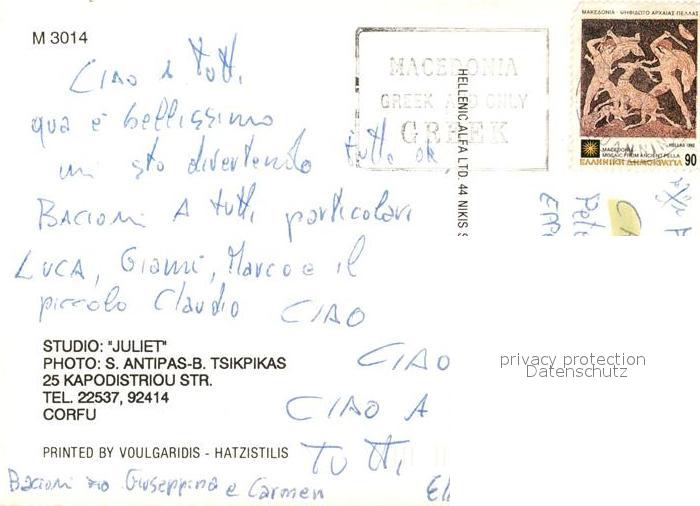 M 3014
Ciao a tutti
qua è bellissimo
mi sto divertendo tutto ok
Bacioni A tutti particolari
LUCA, Gianni, Marco e il
piccolo Claudio CIAO
CIAO
CIAO A
TUTTI
STUDIO: "JULIET"
PHOTO: S. ANTIPAS-B. TSIKPIKAS
25 KAPODISTRIOU STR.
TEL. 22537, 92414
CORFU
PRINTED BY VOULGARIDIS - HATZISTILIS
Bacioni zio Giuseppina e Carmen
MACEDONIA
GREEK AND ONLY
GREEK
HELLENIC ALFA LTD. 44 NIKIS S
ΜΑΚΕΔΟΝΙΑ - ΨΗΦΙΔΩΤΟ ΑΡΧΑΙΑΣ ΠΕΛΛΑΣ
HELLAS 1992
MACEDONIA
MOSAIC FROM ANCIENT PELLA
90
ΕΛΛΗΝΙΚΗ ΔΗΜΟΚΡΑΤΙΑ
privacy protection
Datenschutz